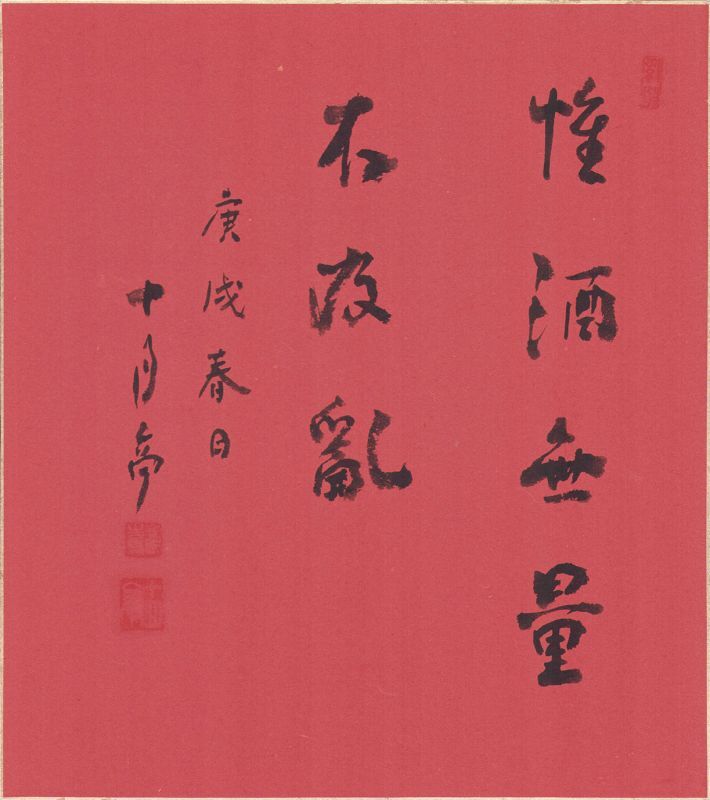 惟酒無量
不及亂
庚戌春日
十